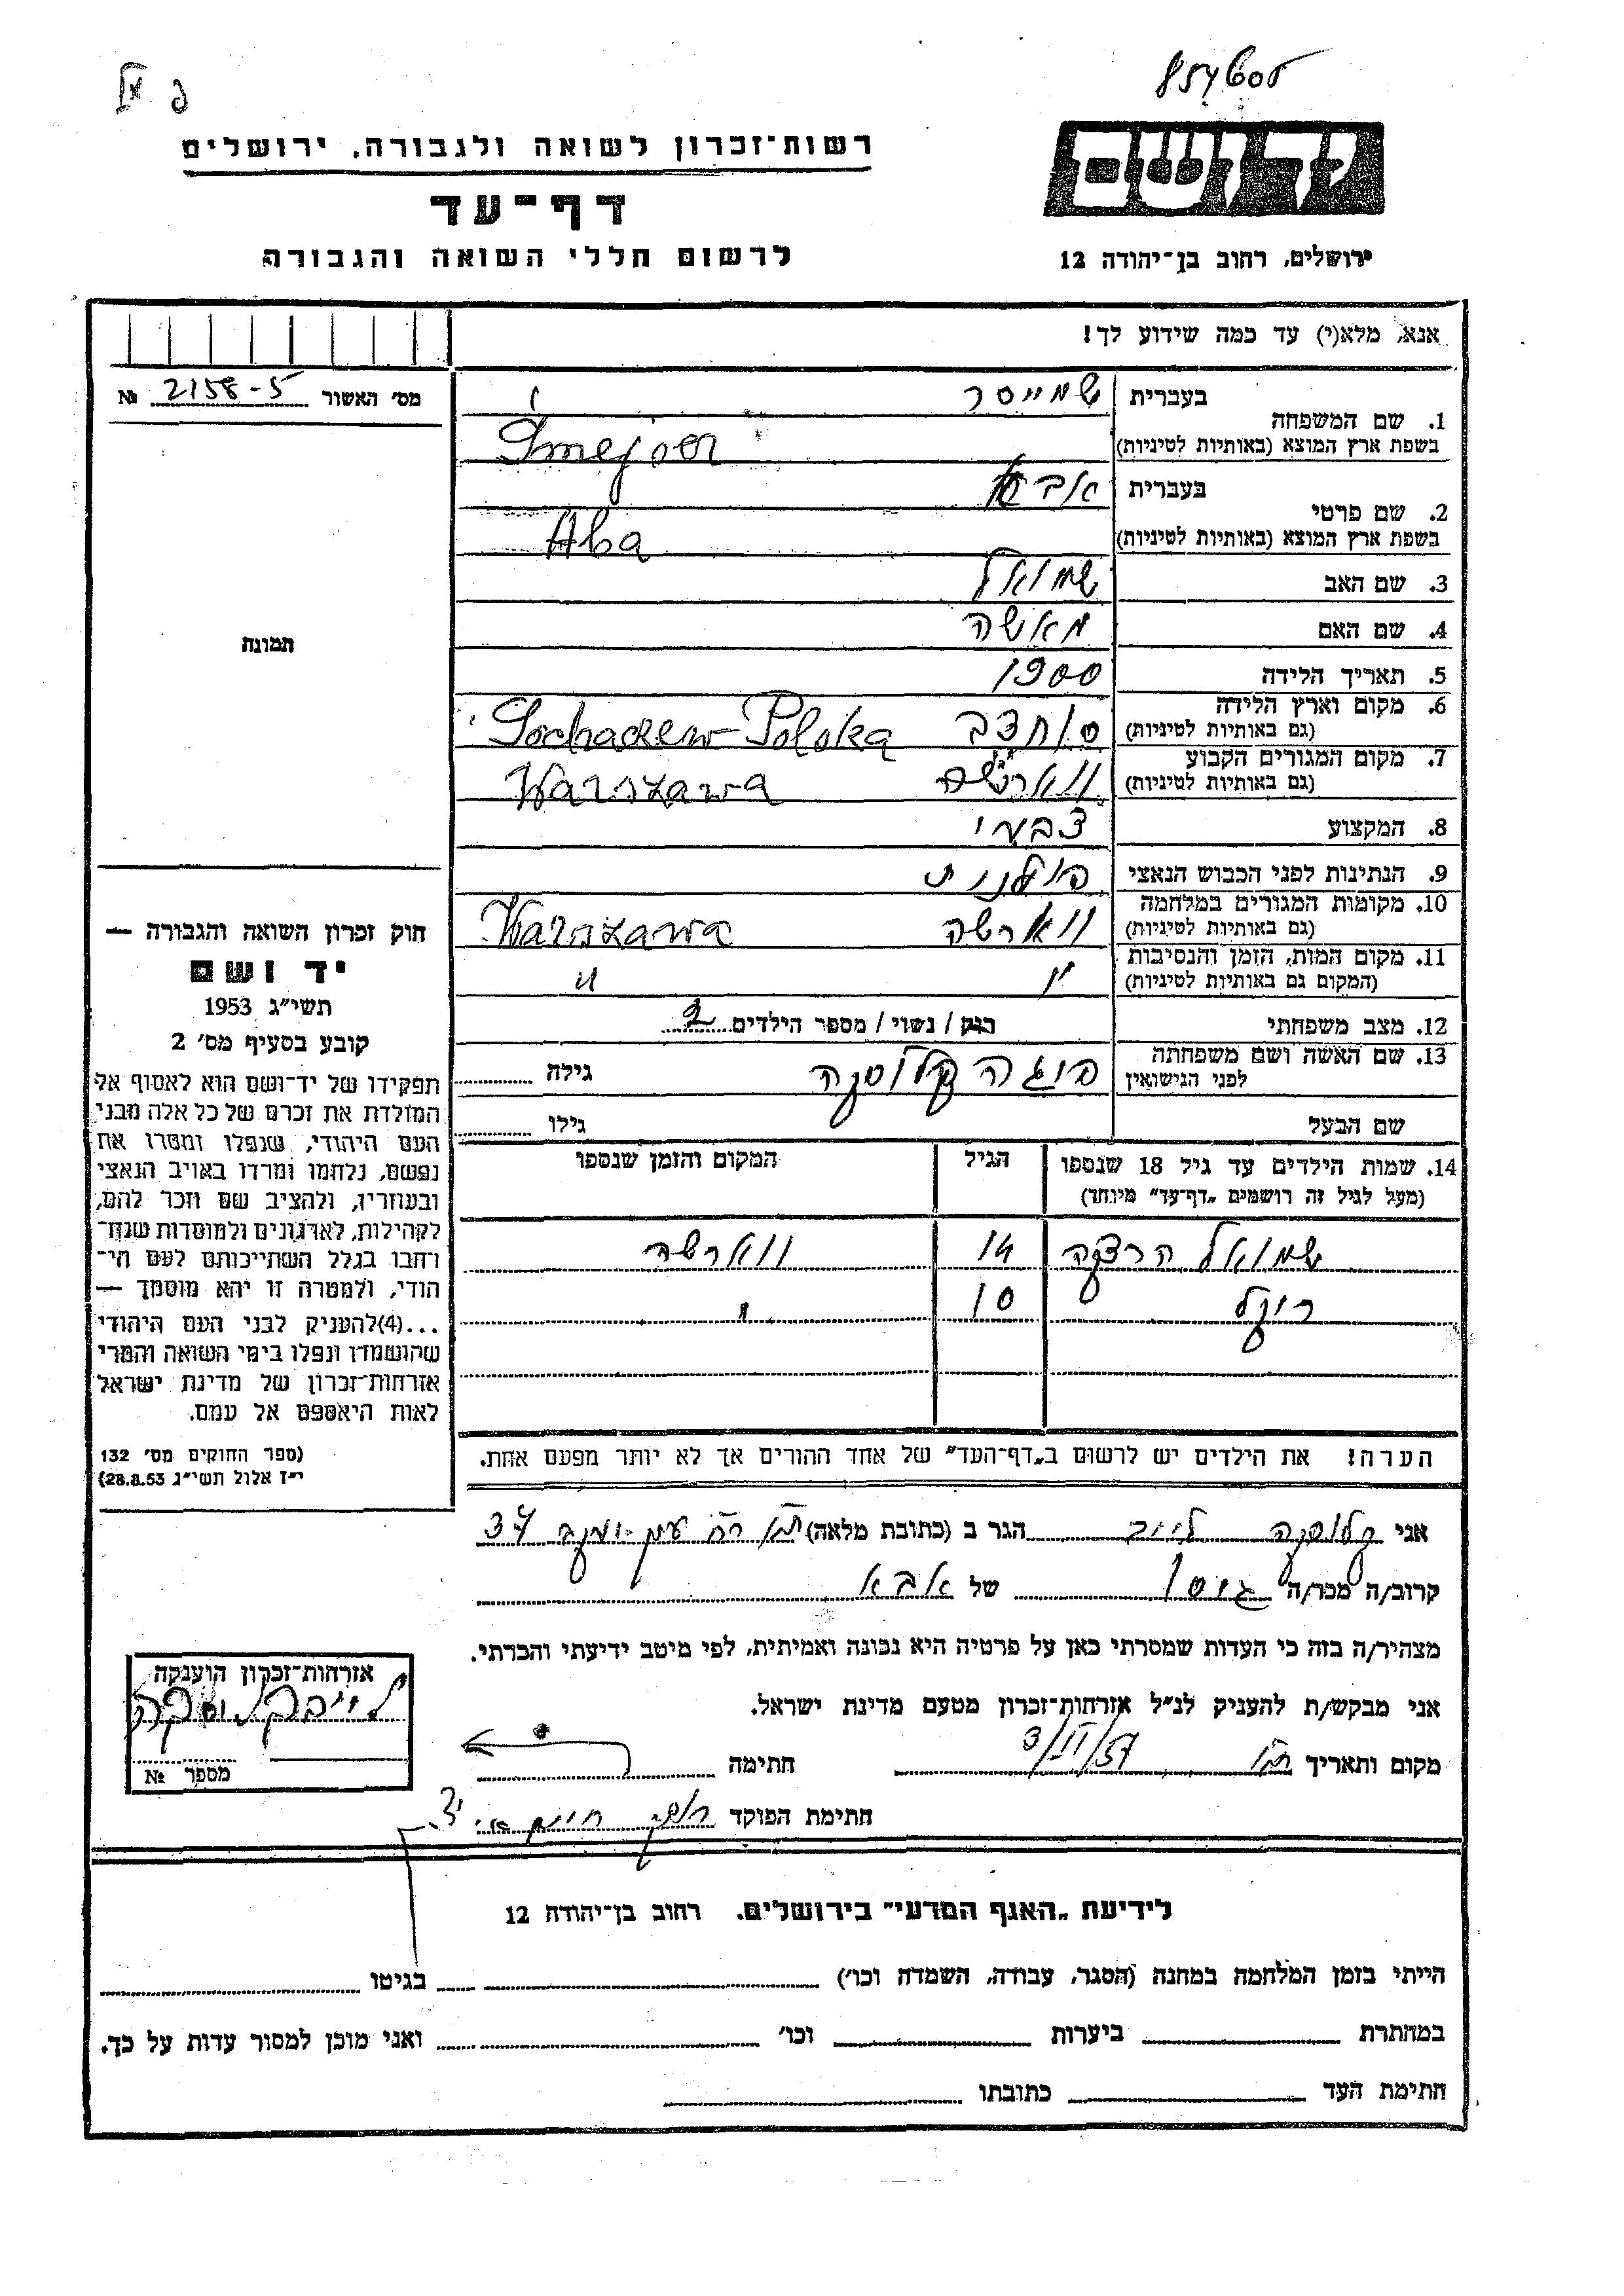 פ
רשות־זכרון לשואה ולגבורה, ירושלים
דף־עד
לרשום חללי השואה והגבורה
ידושם
ירושלים, רחוב בן־יהודה 12
אנא, מלא(י) עד כמה שידוע לך!
מס׳ האשור 2158-5 №
תמונה
1. שם המשפחה בעברית שמייסר
בשפת ארץ המוצא (באותיות לטיניות) Śmejser
2. שם פרטי בעברית אבא
בשפת ארץ המוצא (באותיות לטיניות) Aba
3. שם האב שמואל
4. שם האם מאשה
5. תאריך הלידה 1900
6. מקום וארץ הלידה (גם באותיות לטיניות) סוחצב Sochaczew-Polska
7. מקום המגורים הקבוע (גם באותיות לטיניות) ווארשה Warszawa
8. המקצוע צבעי
9. הנתינות לפני הכבוש הנאצי פולנית
10. מקומות המגורים במלחמה (גם באותיות לטיניות) ווארשה Warszawa
11. מקום המות, הזמן והנסיבות (המקום גם באותיות לטיניות) " "
12. מצב משפחתי רווק / נשוי / מספר הילדים 2
13. שם האשה ושם משפחתה לפני הנישואין קלוסקה גילה
שם הבעל גילו
14. שמות הילדים עד גיל 18 שנספו הגיל המקום והזמן שנספו
(מעל לגיל זה רושמים „דף־עד” מיוחד)
שמואל 14 ווארשה
10 "
הערה! את הילדים יש לרשום ב„דף־העד” של אחד ההורים אך לא יותר מפעם אחת.
חוק זכרון השואה והגבורה —
יד ושם
תשי״ג 1953
קובע בסעיף מס׳ 2
תפקידו של יד־ושם הוא לאסוף אל
המולדת את זכרם של כל אלה מבני
העם היהודי, שנפלו ומסרו את
נפשם, נלחמו ומרדו באויב הנאצי
ובעוזריו, ולהציב שם וזכר להם,
לקהילות, לארגונים ולמוסדות שנח־
רחבו בגלל השתייכותם לעם הי־
הודי, ולמטרה זו יהא מוסמך —
...(4)להעניק לבני העם היהודי
שהושמדו ונפלו בימי השואה והמרי
אזרחות־זכרון של מדינת ישראל
לאות היאספם אל עמם.
(ספר החוקים מס׳ 132
י״ז אלול תשי״ג 28.8.53)
אני קלוסקה לייב הגר ב (כתובת מלאה) 37
קרוב/ה מכר/ה גיסו של אבא
מצהיר/ה בזה כי העדות שמסרתי כאן על פרטיה היא נכונה ואמיתית, לפי מיטב ידיעתי והכרתי.
אני מבקש/ת להעניק לנ״ל אזרחות־זכרון מטעם מדינת ישראל.
מקום ותאריך 3/II/57 חתימה
חתימת הפוקד
אזרחות־זכרון הוענקה
לייב קלוסקה
מספר №
לידיעת „האגף המדעי” בירושלים. רחוב בן־יהודה 12
הייתי בזמן המלחמה במחנה (הסגר, עבודה, השמדה וכו׳) בגיטו
במחתרת ביערות וכו׳ ואני מוכן למסור עדות על כך.
חתימת העד כתובתו